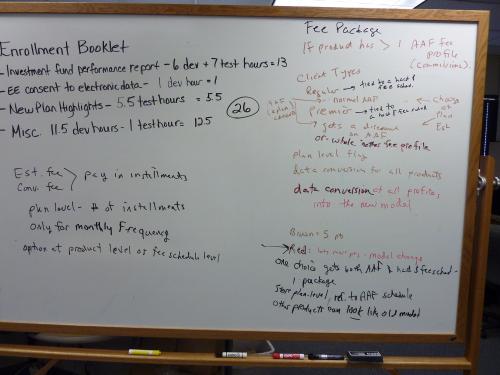 Enrollment Booklet
- Investment fund performance report - 6 dev + 7 test hours = 13
- EE consent to electronic data - 1 dev hour = 1
- New Plan Highlights - 5.5 test hours = 5.5
- Misc. 11.5 dev hours - 1 test hour = 12.5
26
Est. fee > pay in installments
Conv. fee
plan level - # of installments
only for monthly Frequency
option at product level or fee schedule level
Fee Package
If product has > 1 AAF fee
profile
(commissions)
Client Types
Regular → tied by a hard $
fee sched.
→ normal AAF
premier → tied to
→ gets a discount
on AAF
or whole other fee profile
→ change
at
Plan
Est
plan level flag
data conversion for all products
data conversion of all profiles
into the new model
Brian = 5 pts
→ Red: lots more pts - model change
one choice gets both AAF & hard $ fee sched -
1 package
Store plan-level, ref. to AAF schedule
Other products can look like old model